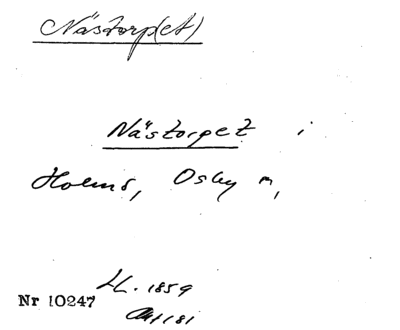 Nästorp(et)
Nästorpet i
Holms, Osby m,
Nr 10247
LL. 1859